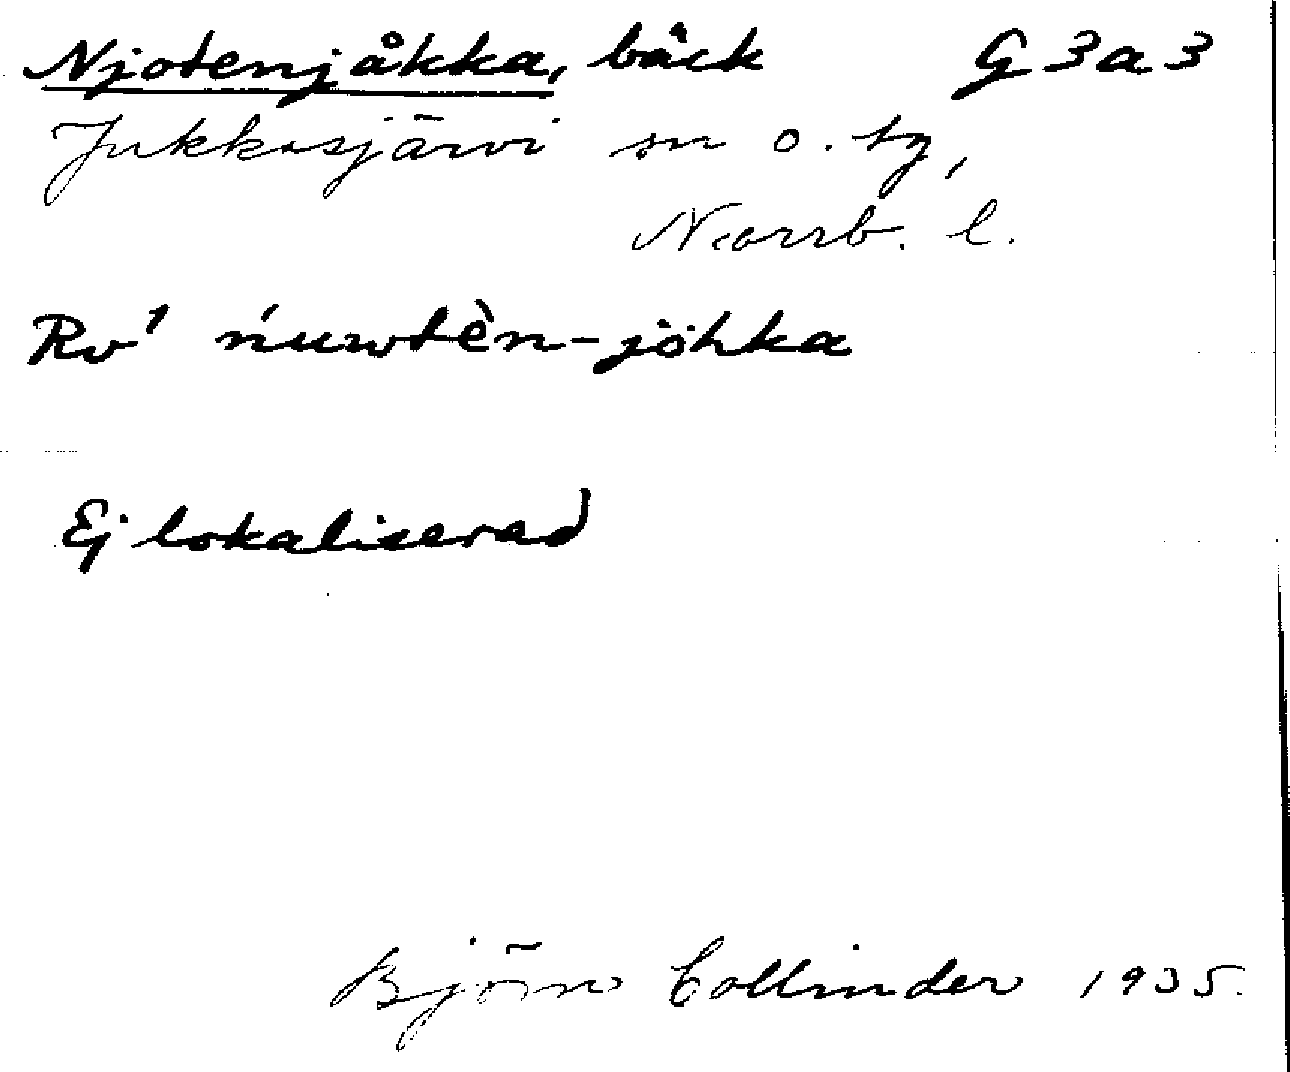 Njotenjåkka, bäck G3a3
Jukkasjärvi sn o. tg,
Norrb. l.
Rv' ńuwtèn-jöhka
Ej lokaliserad
Björn Collinder 1935.